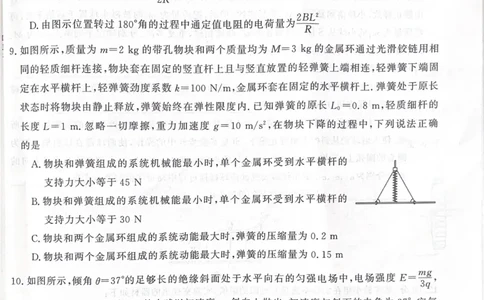 2R
D.由图示位置转过 180°角的过程中通定值电阻的电荷量为 2BL²/R
9.如图所示,质量为 m=2 kg 的带孔物块和两个质量均为 M=3 kg 的金属环通过光滑铰链用相
同的轻质细杆连接,物块套在固定的竖直杆上且与竖直放置的轻弹簧上端相连,轻弹簧下端固
定在水平横杆上,轻弹簧劲度系数 k=100 N/m,金属环套在固定的水平横杆上.弹簧处于原长
状态时将物块由静止释放,弹簧始终在弹性限度内.已知弹簧的原长 L₀=0.8 m,轻质细杆的
长度 L=1 m.忽略一切摩擦,重力加速度 g=10 m/s²,在物块下降的过程中,下列说法正确
的是
A.物块和弹簧组成的系统机械能最小时,单个金属环受到水平横杆的
支持力大小等于 45 N
B.物块和弹簧组成的系统机械能最小时,单个金属环受到水平横杆的
支持力大小等于 30 N
C.物块和两个金属环组成的系统动能最大时,弹簧的压缩量为 0.2 m
D.物块和两个金属环组成的系统动能最大时,弹簧的压缩量为 0.15 m
10.如图所示,倾角 θ=37°的足够长的绝缘斜面处于水平向右的匀强电场中,电场强度 E=mg/3q,